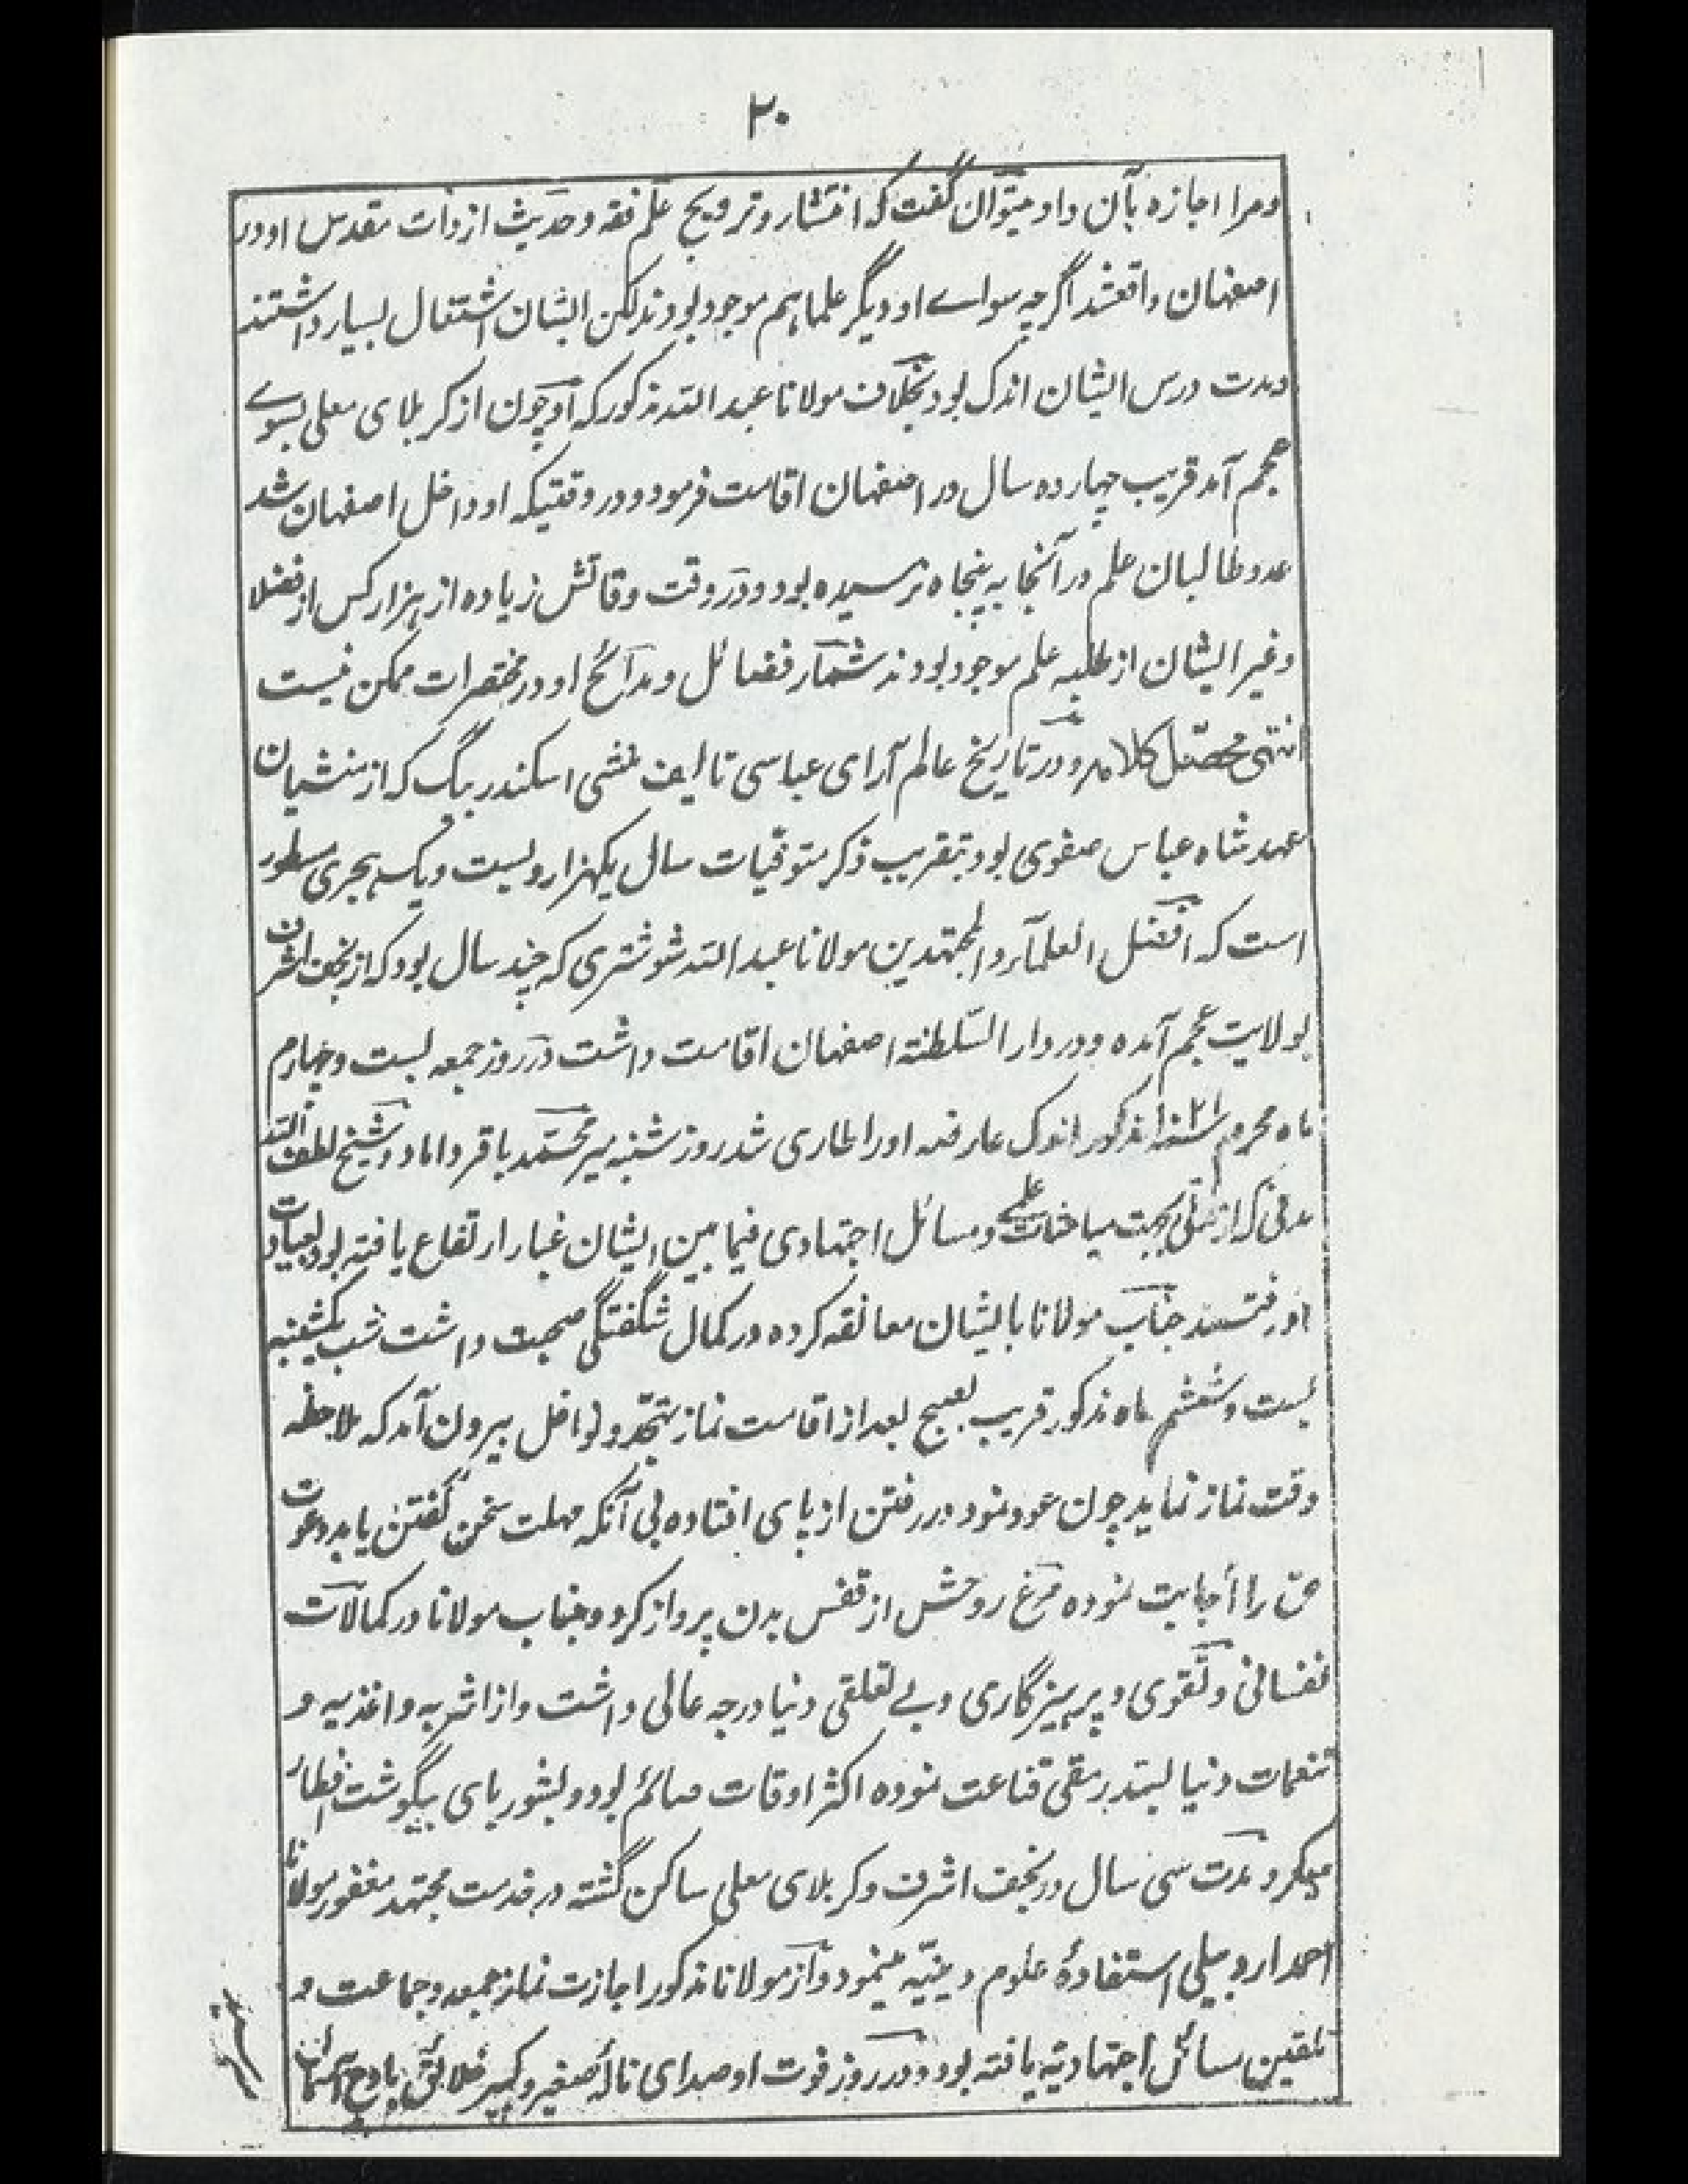 ۲۰
ومرا اجازه بآن داد میتوان گفت که انتشار و ترویج علم فقه و حدیث از ذات مقدس او در
اصفهان واقعشد اگرچه سواے او دیگر علما هم موجود بودند لکن ایشان اشتغال بسیار داشتند
ومدت درس ایشان اندک بود بخلاف مولانا عبد الله مذکور که او چون از کربلای معلی بسوے
عجم آمد قریب چهارده سال در اصفهان اقامت فرمود و در وقتیکه او داخل اصفهان شد
عدد طالبان علم در آنجا به پنجاه نرسیده بود و در وقت وفاتش زیاده از هزار کس از فضلا
وغیر ایشان از طلبه علم موجود بودند شمار فضائل و مدائح او در مختصرات ممکن نیست
انتهی محصّل کلامه و در تاریخ عالم آرای عباسی تالیف منشی اسکندر بیگ که از منشیان
عهد شاه عباس صفوی بود بتقریب ذکر متوفیات سال یکهزار و بیست و یک هجری مسطور
است که افضل العلمآء و المجتهدین مولانا عبد الله شوشتری که چند سال بود که از نجف اشرف
بولایت عجم آمده و در دار السّلطنة اصفهان اقامت داشت در روز جمعه بست و چهارم
ماه محرم سنه ۱۰۲۱ مذکور اندک عارضه او را طاری شد روز شنبه میر محمّد باقر داماد و شیخ لطف الله
که از بجهت مباحثات علمے و مسائل اجتهادی فیما بین ایشان غبار ارتفاع یافته بود بعیادت
او رفتند جناب مولانا بایشان معانقه کرده در کمال شگفتگی صحبت داشت شب یکشنبه
بست و ششم ماه مذکور قریب بصبح بعد از اقامت نماز تهجّد و نوافل بیرون آمد که ملاحظه
وقت نماز نماید چون عود نمود در رفتن از پای افتاده بی آنکه مهلت سخن گفتن یابد دعوت
حق را اجابت نموده مرغ روحش از قفس بدن پرواز کرد و جناب مولانا در کمالات
نفسانی و تقوی و پرهیزگاری و بے تعلقی دنیا درجه عالی داشت و از اشربه و اغذیه و
تنعمات دنیا بسد رمقی قناعت نموده اکثر اوقات صائم بود و بشوربای بیگوشت افطار
میکرد و مدت سی سال در نجف اشرف و کربلای معلی ساکن گشته در خدمت مجتهد مغفور مولانا
احمد اردبیلی استفادهٔ علوم دینیّه مینمود و از مولانا مذکور اجازت نماز جمعه و جماعت و
تلقین مسائل اجتهادیه یافته بود و در روز فوت او صدای ناله صغیر و کبیر خلائق باوج آسمان